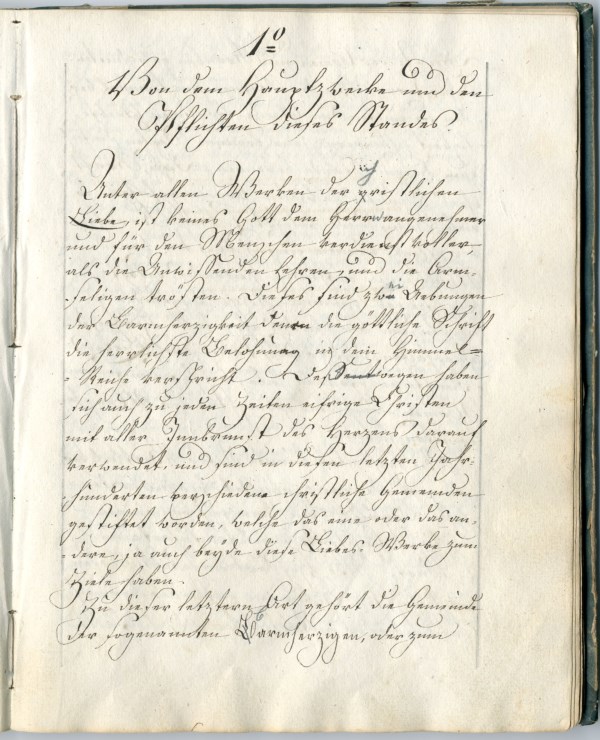 1º
Von dem Hauptzwecke und den
Pflichten dieses Standes.
Unter allen Werken der christlichen
Liebe, ist keines Gott dem Herrn angenehmer
und für den Menschen verdienstvoller,
als die Unwissenden lehren, und die Arm-
seligen trösten. Dieses sind zwei Uebungen
der Barmherzigkeit denen die göttliche Schrift
die herrlichste Belohnung in dem Himmel=
=Reiche verspricht. Dessentwegen haben
sich auch zu jeden Zeiten eifrige Christen
mit aller Innbrunst des Herzens darauf
verwendet, und sind in diesen letzten Jahr-
hunderten verschiedene christliche Gemeinden
gestiftet worden, welche das eine oder das an-
dere, ja auch beyde diese Liebes-Werke zum
Ziele haben.
Zu dieser letztern Art gehört die Gemeinde
der sogenannten Barmherzigen, oder zum